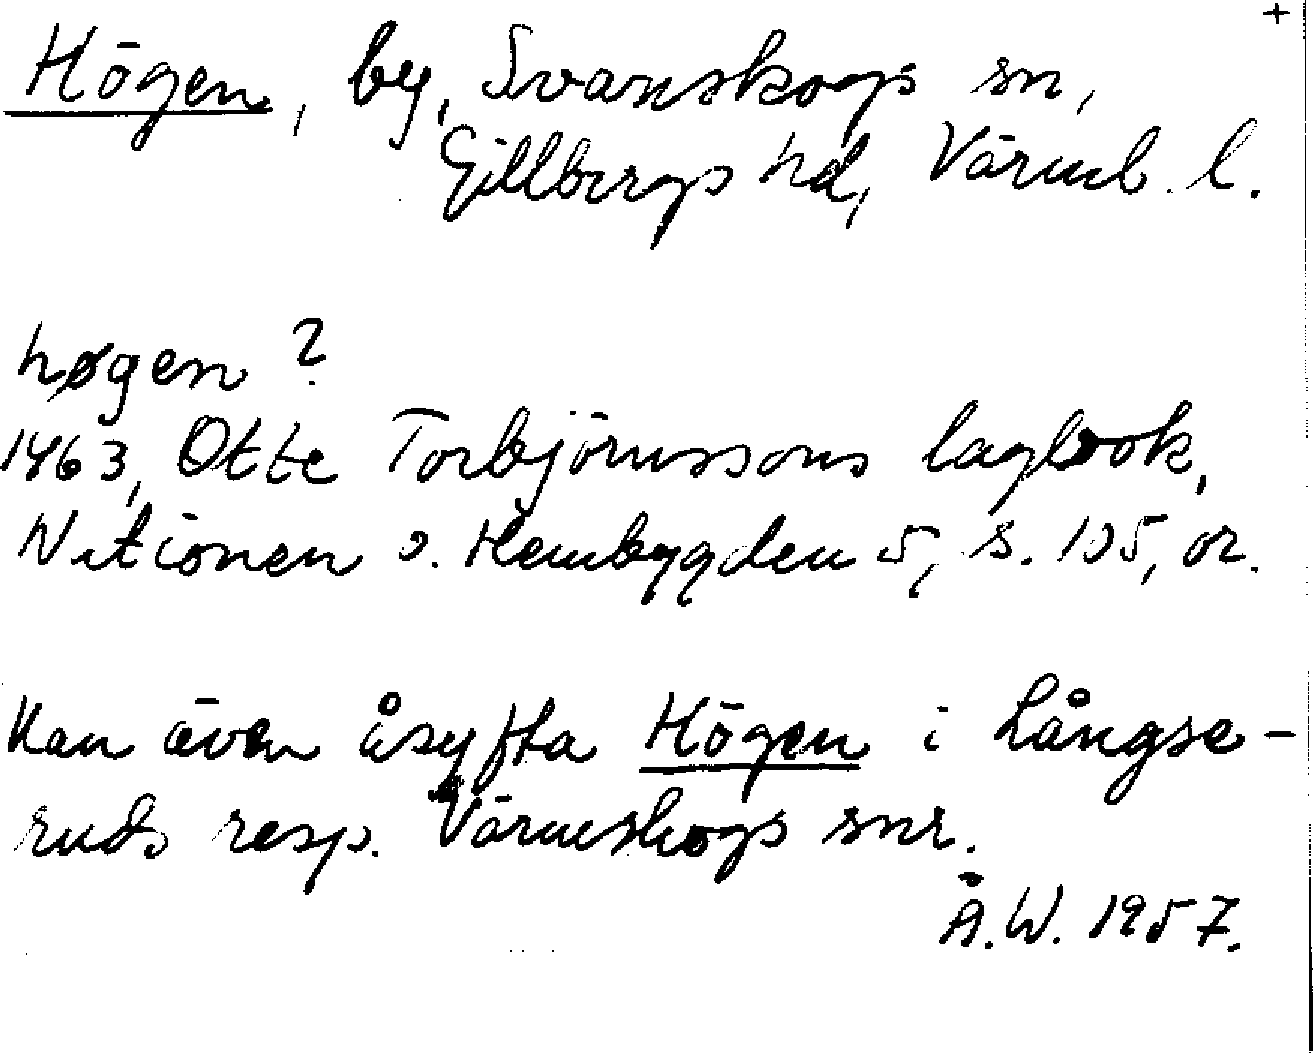 +
Högen, by, Svanskogs sn,
Gillbergs hd, Värml. l.
høgen ?
1463, Otte Torbjörnssons lagbok,
Nationen o. Hembygden 5, s. 105, or.
Kan även åsyfta Högen i Långse-
ruds resp. Värmskogs snr.
Å.W. 1957.